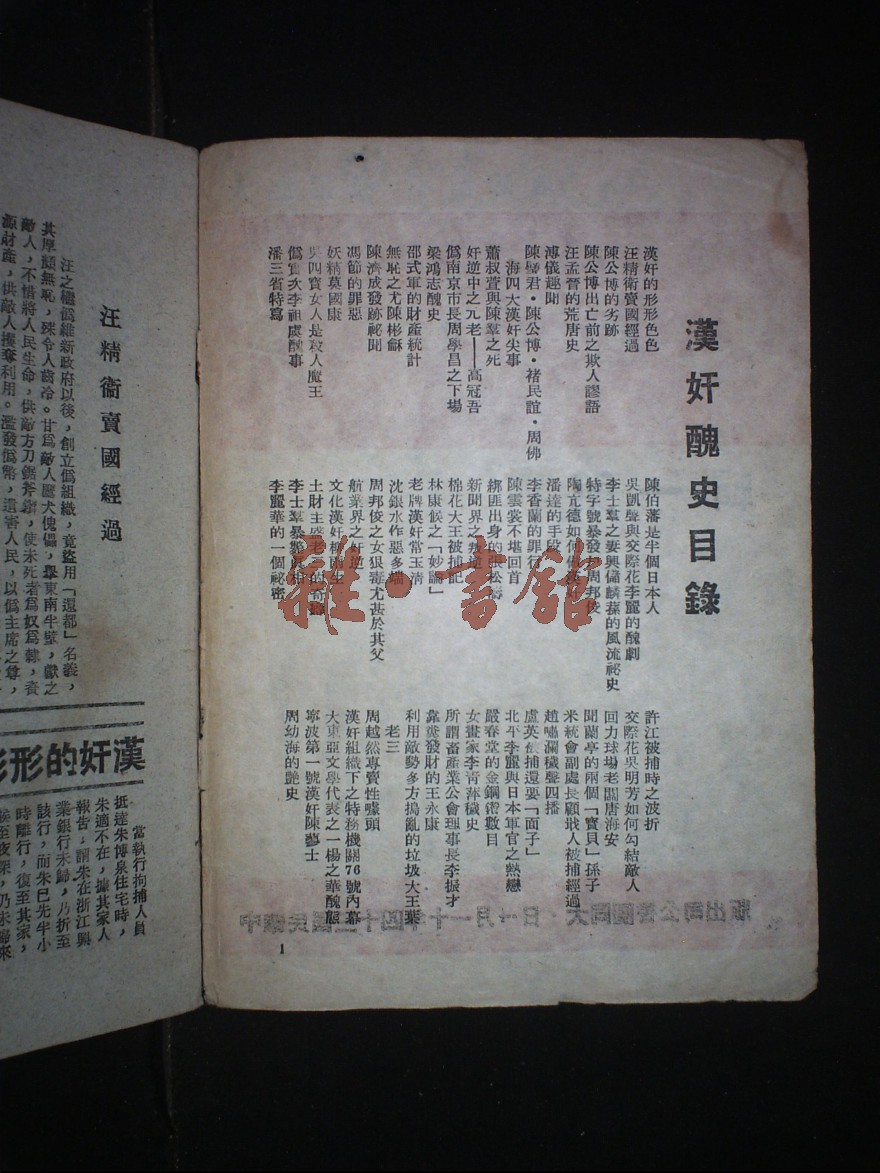 漢奸醜史目錄
漢奸的形形色色
汪精衛賣國經過
陳公博的劣跡
陳公博出亡前之欺人謬語
汪孟晉的荒唐史
溥儀趣聞
陳璧君・陳公博・褚民誼・周佛
海四大漢奸尖事
蕭叔萱與陳羣之死
奸逆中之元老——高冠吾
僞南京市長周學昌之下場
梁鴻志醜史
邵式軍的財產統計
無恥之尤陳彬龢
陳濟成發跡祕聞
馮節的罪惡
妖精莫國康
吳四寶女人是殺人魔王
僞實次李祖虞醜事
潘三省特寫
陳伯藩是半個日本人
吳凱聲與交際花李麗的醜劇
李士羣之妻興儲麟蓀的風流祕史
特字號暴發戶周邦俊
陶亢德如何做漢奸
潘達的手段
李香蘭的罪行
陳雲裳不堪回首
綁匪出身的張松濤
新聞界之叛逆
棉花大王被捕記
林康候之「妙論」
老牌漢奸常玉清
沈銀水作惡多端
周邦俊之女狠毒尤甚於其父
航業界之奸逆
文化漢奸柳雨生
土財主盛老三的奇蹟
李士羣暴斃眞相
李麗華的一個祕密
許江被捕時之波折
交際花吳明芳如何勾結敵人
回力球場老闆唐海安
聞蘭亭的兩個「寶貝」孫子
米統會副處長顧戩人被捕經過
趙嘯瀾穢聲四播
盧英被捕還要「面子」
北平李麗與日本軍官之熱戀
嚴春堂的金鋼鑽數目
女畫家李青萍穢史
所謂畜產業公會理事長李振才
靠糞發財的王永康
利用敵勢多方搗亂的垃圾大王葉
老三
周越然專賣性噱頭
漢奸組織下之特務機關76號內幕
大東亞文學代表之一楊之華醜態
寧波第一號漢奸陳藝士
周幼海的艷史
1
雜・書館
汪精衛賣國經過
汪之繼僞維新政府以後，創立僞組織，竟盜用「還都」名義，
其厚顏無恥，殊令人齒冷。甘爲敵人鷹犬傀儡，舉東南半壁，獻之
敵人，不惜將人民生命，供敵方刀鋸斧鑕，使未死者爲奴爲隸，資
源財產，供敵人攫奪利用。濫發僞幣，遺害人民，以僞主席之尊，
漢奸的形形
當執行拘捕人員
抵達朱博泉住宅時，
朱適不在，據其家人
報告，謂朱在浙江興
業銀行未歸，乃折至
該行，而朱已先半小
時離行，復至其家，
候至夜深，仍未歸來